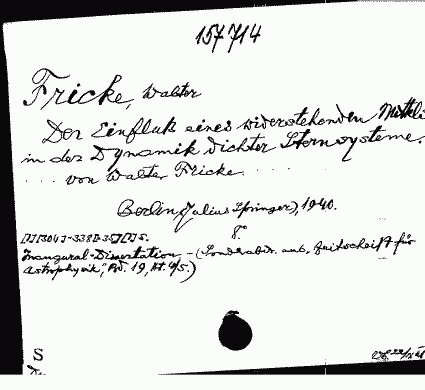 157714
Fricke, Walter
Der Einfluß eines widerstehenden Mittels
in der Dynamik dichter Sternsysteme.
von Walter Fricke.
Berlin (Julius Springer), 1940.
8°
Inaugural-Dissertation. - (Sonderabdr. aus, Zeitschrift für
Astrophysik", Bd. 19, H. 4/5.)
S